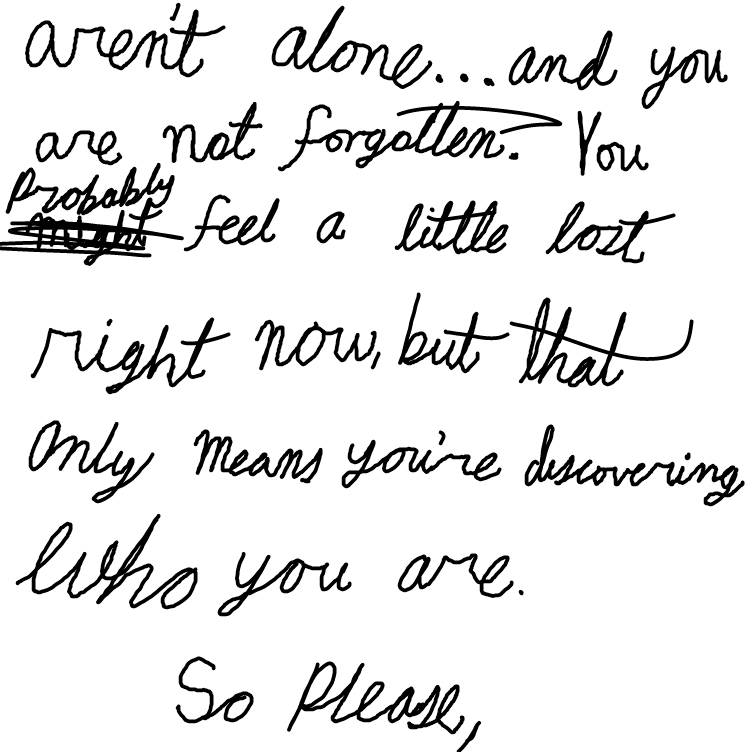 aren't alone... and you
are not forgotten. You
probably might feel a little lost
right now, but that
only means you're discovering
who you are.
So please,